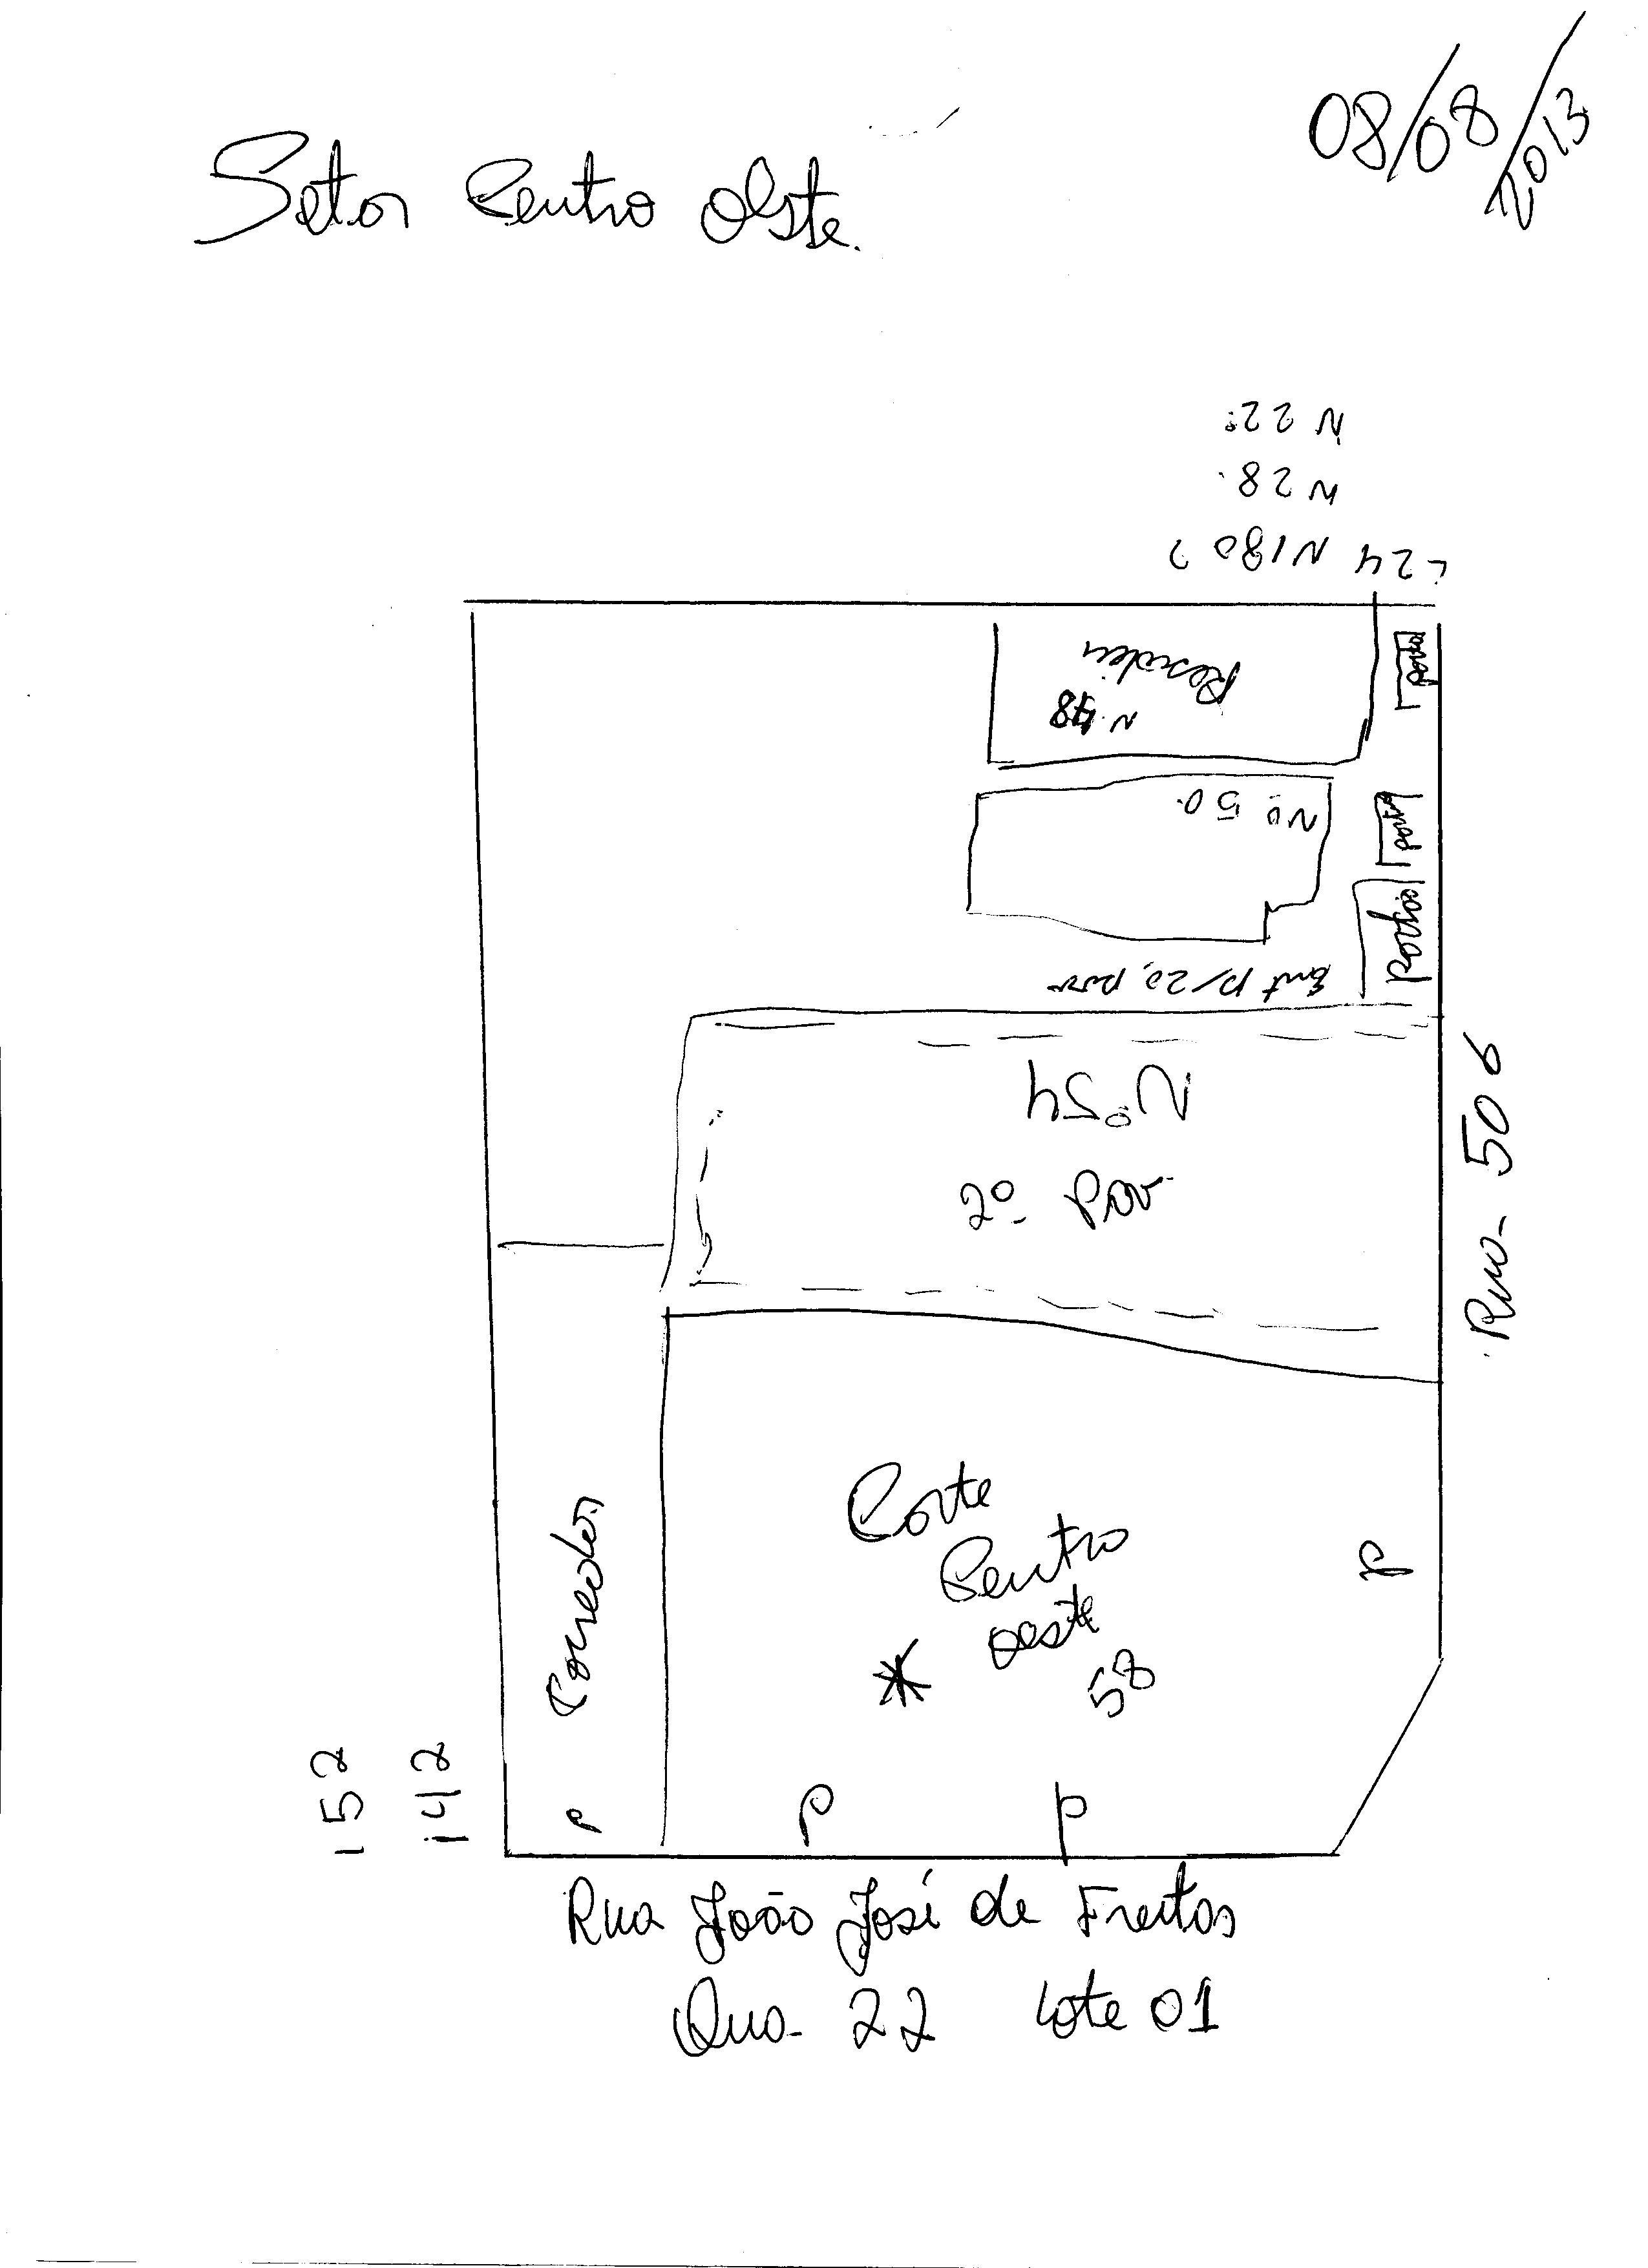 08/08/2013
Setor Centro Oeste.
N 22
N 28.
L24 N180 ?
Residen
N. 48
Nº 50.
Ent p/2º, pav
portão
Nº 54
2º Pav.
Rua 506
Corte
Centro
oeste
58
*
Corredor
P
P
P
P
152
142
Rua João José de Freitas
Qua 22 Lote 01